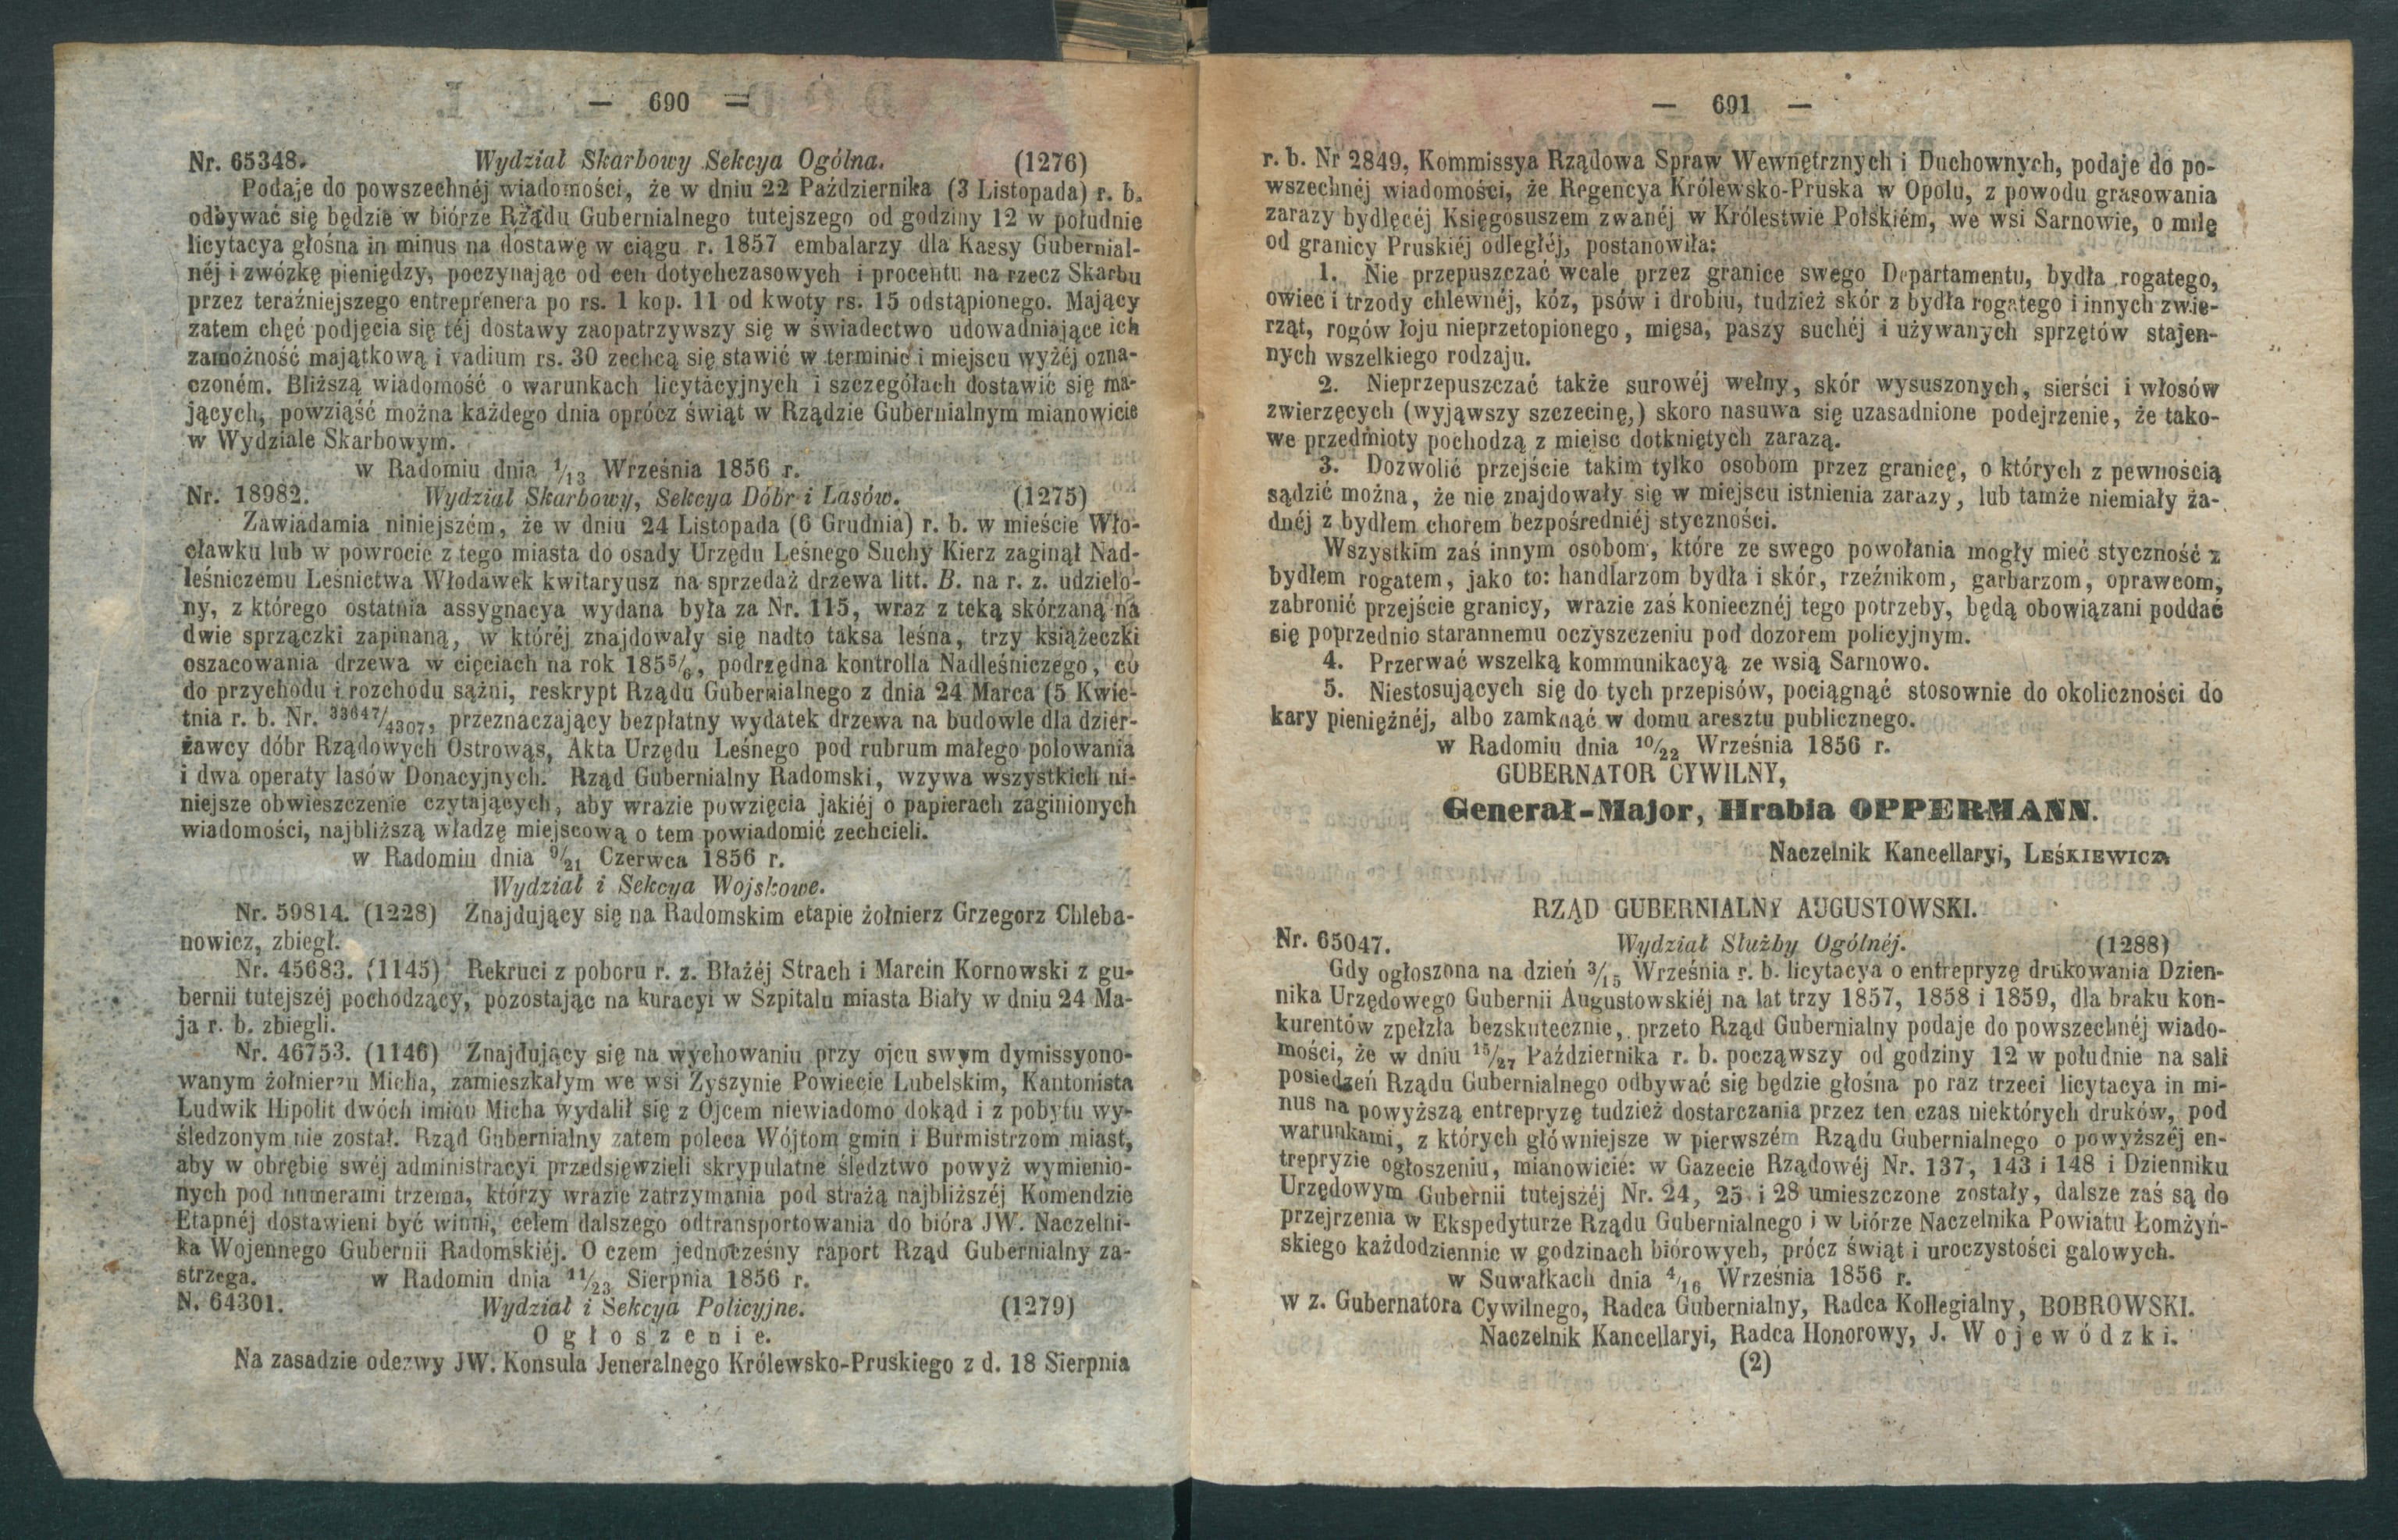 — 690 —
Nr. 65348. Wydział Skarbowy Sekcya Ogólna. (1276)
Podaje do powszechnéj wiadomości, że w dniu 22 Października (3 Listopada) r. b.
odbywać się będzie w biórze Rządu Gubernialnego tutejszego od godziny 12 w południe
licytacya głośna in minus na dostawę w ciągu r. 1857 embalarzy dla Kassy Gubernial-
néj i zwózkę pieniędzy, poczynając od cen dotychczasowych i procentu na rzecz Skarbu
przez teraźniejszego entreprenera po rs. 1 kop. 11 od kwoty rs. 15 odstąpionego. Mający
zatem chęć podjęcia się téj dostawy zaopatrzywszy się w świadectwo udowadniające ich
zamożność majątkową i vadium rs. 30 zechcą się stawić w terminie i miejscu wyżéj ozna-
czoném. Bliższą wiadomość o warunkach licytacyjnych i szczegółach dostawić się ma-
jących, powziąść można każdego dnia oprócz świąt w Rządzie Gubernialnym mianowicie
w Wydziale Skarbowym.
w Radomiu dnia 1/13 Września 1856 r.
Nr. 18982. Wydział Skarbowy, Sekcya Dóbr i Lasów. (1275)
Zawiadamia niniejszém, że w dniu 24 Listopada (6 Grudnia) r. b. w mieście Wło-
cławku lub w powrocie z tego miasta do osady Urzędu Leśnego Suchy Kierz zaginął Nad-
leśniczemu Leśnictwa Włodawek kwitaryusz na sprzedaż drzewa litt. B. na r. z. udzielo-
ny, z którego ostatnia assygnacya wydana była za Nr. 115, wraz z teką skórzaną na
dwie sprzączki zapinaną, w któréj znajdowały się nadto taksa leśna, trzy książeczki
oszacowania drzewa w cięciach na rok 1855/6, podrzędna kontrolla Nadleśniczego, co
do przychodu i rozchodu sążni, reskrypt Rządu Gubernialnego z dnia 24 Marca (5 Kwie-
tnia r. b. Nr. 33647/4307, przeznaczający bezpłatny wydatek drzewa na budowle dla dzier-
żawcy dóbr Rządowych Ostrowąs, Akta Urzędu Leśnego pod rubrum małego polowania
i dwa operaty lasów Donacyjnych. Rząd Gubernialny Radomski, wzywa wszystkich ni-
niejsze obwieszczenie czytających, aby wrazie powzięcia jakiéj o papierach zaginionych
wiadomości, najbliższą władzę miejscową o tem powiadomić zechcieli.
w Radomiu dnia 9/21 Czerwca 1856 r.
Wydział i Sekcya Wojskowe.
Nr. 59814. (1228) Znajdujący się na Radomskim etapie żołnierz Grzegorz Chleba-
nowicz, zbiegł.
Nr. 45683. (1145) Rekruci z poboru r. z. Błażéj Strach i Marcin Kornowski z gu-
bernii tutejszéj pochodzący, pozostając na kuracyi w Szpitalu miasta Biały w dniu 24 Ma-
ja r. b. zbiegli.
Nr. 46753. (1146) Znajdujący się na wychowaniu przy ojcu swym dymissyono-
wanym żołnierzu Micha, zamieszkałym we wsi Zyszynie Powiecie Lubelskim, Kantonista
Ludwik Hipolit dwóch imion Micha wydalił się z Ojcem niewiadomo dokąd i z pobytu wy-
śledzonym nie został. Rząd Gubernialny zatem poleca Wójtom gmin i Burmistrzom miast,
aby w obrębie swéj administracyi przedsięwzieli skrypulatne śledztwo powyż wymienio-
nych pod numerami trzema, którzy wrazie zatrzymania pod strażą najbliższéj Komendzie
Etapnéj dostawieni być winni, celem dalszego odtransportowania do bióra JW. Naczelni-
ka Wojennego Gubernii Radomskiéj. O czem jednocześny raport Rząd Gubernialny za-
strzega. w Radomiu dnia 11/23 Sierpnia 1856 r.
N. 64301. Wydział i Sekcya Policyjne. (1279)
Ogłoszenie.
Na zasadzie odezwy JW. Konsula Jeneralnego Królewsko-Pruskiego z d. 18 Sierpnia
— 691 —
r. b. Nr 2849, Kommissya Rządowa Spraw Wewnętrznych i Duchownych, podaje do po-
wszechnéj wiadomości, że Regencya Królewsko-Pruska w Opolu, z powodu grasowania
zarazy bydlęcéj Księgosuszem zwanéj w Królestwie Polskiém, we wsi Sarnowie, o milę
od granicy Pruskiéj odległéj, postanowiła:
1. Nie przepuszczać wcale przez granice swego Departamentu, bydła rogatego,
owiec i trzody chlewnéj, kóz, psów i drobiu, tudzież skór z bydła rogatego i innych zwie-
rząt, rogów łoju nieprzetopionego, mięsa, paszy suchéj i używanych sprzętów stajen-
nych wszelkiego rodzaju.
2. Nieprzepuszczać także surowéj wełny, skór wysuszonych, sierści i włosów
zwierzęcych (wyjąwszy szczecinę,) skoro nasuwa się uzasadnione podejrzenie, że tako-
we przedmioty pochodzą z miejsc dotkniętych zarazą.
3. Dozwolić przejście takim tylko osobom przez granicę, o których z pewnością
sądzić można, że nie znajdowały się w miejscu istnienia zarazy, lub tamże niemiały ża-
dnéj z bydłem chorem bezpośredniéj styczności.
Wszystkim zaś innym osobom, które ze swego powołania mogły mieć styczność z
bydłem rogatem, jako to: handlarzom bydła i skór, rzeźnikom, garbarzom, oprawcom,
zabronić przejście granicy, wrazie zaś koniecznéj tego potrzeby, będą obowiązani poddać
się poprzednio starannemu oczyszczeniu pod dozorem policyjnym.
4. Przerwać wszelką kommunikacyą ze wsią Sarnowo.
5. Niestosujących się do tych przepisów, pociągnąć stosownie do okoliczności do
kary pieniężnéj, albo zamknąć w domu aresztu publicznego.
w Radomiu dnia 10/22 Września 1856 r.
GUBERNATOR CYWILNY,
Generał-Major, Hrabia OPPERMANN.
Naczelnik Kancellaryi, LEŚKIEWICZ.
RZĄD GUBERNIALNY AUGUSTOWSKI.
Nr. 65047. Wydział Służby Ogólnéj. (1288)
Gdy ogłoszona na dzień 3/15 Września r. b. licytacya o entrepryzę drukowania Dzien-
nika Urzędowego Gubernii Augustowskiéj na lat trzy 1857, 1858 i 1859, dla braku kon-
kurentów zpełzła bezskutecznie, przeto Rząd Gubernialny podaje do powszechnéj wiado-
mości, że w dniu 15/27 Października r. b. począwszy od godziny 12 w południe na sali
posiedzeń Rządu Gubernialnego odbywać się będzie głośna po raz trzeci licytacya in mi-
nus na powyższą entrepryzę tudzież dostarczania przez ten czas niektórych druków, pod
warunkami, z których główniejsze w pierwszém Rządu Gubernialnego o powyższéj en-
trepryzie ogłoszeniu, mianowicie: w Gazecie Rządowéj Nr. 137, 143 i 148 i Dzienniku
Urzędowym Gubernii tutejszéj Nr. 24, 25 i 28 umieszczone zostały, dalsze zaś są do
przejrzenia w Ekspedyturze Rządu Gubernialnego i w biórze Naczelnika Powiatu Łomżyń-
skiego każdodziennie w godzinach biórowych, prócz świąt i uroczystości galowych.
w Suwałkach dnia 4/16 Września 1856 r.
w z. Gubernatora Cywilnego, Radca Gubernialny, Radca Kollegialny, BOBROWSKI.
Naczelnik Kancellaryi, Radca Honorowy, J. Wojewódzki.
(2)